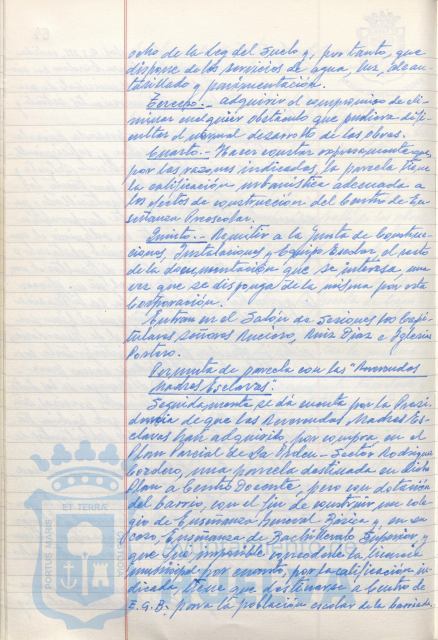 ocho de la Ley del Suelo y, por tanto, que
dispone de los servicios de agua, luz, alcan-
tarillado y pavimentación.
Tercero.- Adquirir el compromiso de eli-
minar cualquier obstáculo que pudiera difi-
cultar el normal desarrollo de las obras.
Cuarto.- Hacer constar expresamente que,
por las razones indicadas, la parcela tiene
la calificación urbanística adecuada a
los efectos de construcción del Centro de En-
señanza Preescolar.
Quinto.- Remitir a la Junta de Construc-
ciones, Instalaciones y Equipo Escolar el resto
de la documentación que se interesa, una
vez que se disponga de la misma por esta
Corporación.
Entran en el Salón de Sesiones los Capi-
tulares señores Ruiz Díaz e Iglesias
Permuta de parcela con las "Reverendas
Madres Esclavas".
Seguidamente se dá cuenta por la Presi-
dencia de que las Reverendas Madres Es-
clavas han adquirido, por compra, en el
Plan Parcial de La Orden - Sector Rodríguez
Cordero, una parcela destinada en dicho
Plan a Centro Docente, pero con dotación
del barrio, con el fin de construir un cole-
gio de Enseñanza General Básica y, en su
caso, Enseñanza de Bachillerato Superior, y
que es imposible concederle la licencia
municipal por cuanto, por la calificación in-
dicada, tiene que destinarse a Centro de
E.G.B. para la población escolar de la barriada,
PORTUS MARIS
ET TERRAE
CUSTODIA